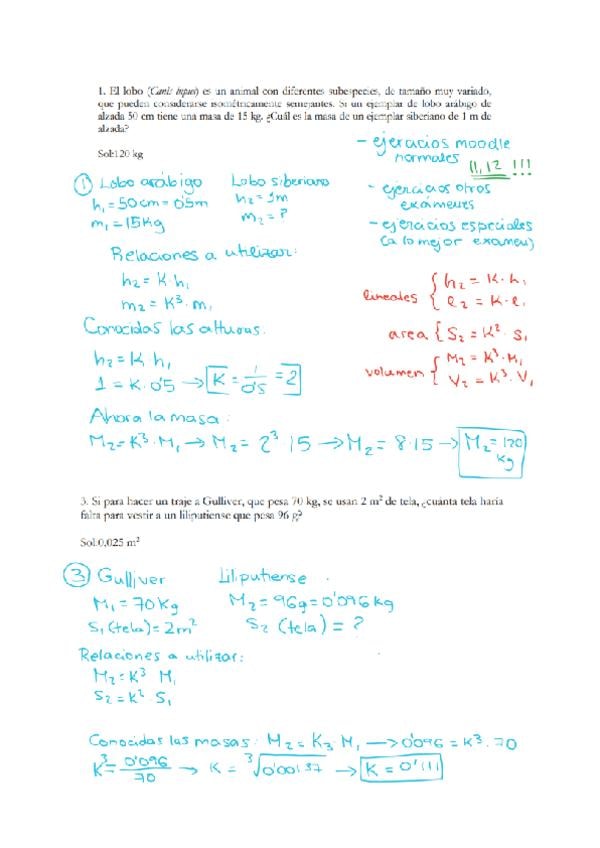 1. El lobo (Canis lupus) es un animal con diferentes subespecies, de tamaño muy variado,
que pueden considerarse isométricamente semejantes. Si un ejemplar de lobo arábigo de
alzada 50 cm tiene una masa de 15 kg. ¿Cuál es la masa de un ejemplar siberiano de 1 m de
alzada?
Sol:120 kg
- ejercicios moodle
normales 11, 12 !!!
- ejercicios otros
exámenes
- ejercicios especiales
(a lo mejor examen)
① Lobo arábigo Lobo siberiano
h₁ = 50cm = 0'5m h₂ = 1m
m₁ = 15Kg m₂ = ?
Relaciones a utilizar:
h₂ = K · h₁
m₂ = K³ · m₁
lineales { h₂ = K · h₁
l₂ = K · l₁
area { S₂ = K² · S₁
volumen { M₂ = K³ · M₁
V₂ = K³ · V₁
Conocidas las alturas:
h₂ = K h₁
1 = K · 0'5 → K = 1/0'5 = 2
Ahora la masa:
M₂ = K³ · M₁ → M₂ = 2³ · 15 → M₂ = 8 · 15 → M₂ = 120 kg
3. Si para hacer un traje a Gulliver, que pesa 70 kg, se usan 2 m² de tela, ¿cuánta tela haría
falta para vestir a un liliputiense que pesa 96 g?
Sol:0,025 m²
③ Gulliver Liliputiense
M₁ = 70 Kg M₂ = 96g = 0'096 kg
S₁ (tela) = 2m² S₂ (tela) = ?
Relaciones a utilizar:
M₂ = K³ M₁
S₂ = K² · S₁
Conocidas las masas: M₂ = K₃ M₁ → 0'096 = K³ · 70
K³ = 0'096/70 → K = ³√0'00137 → K = 0'111